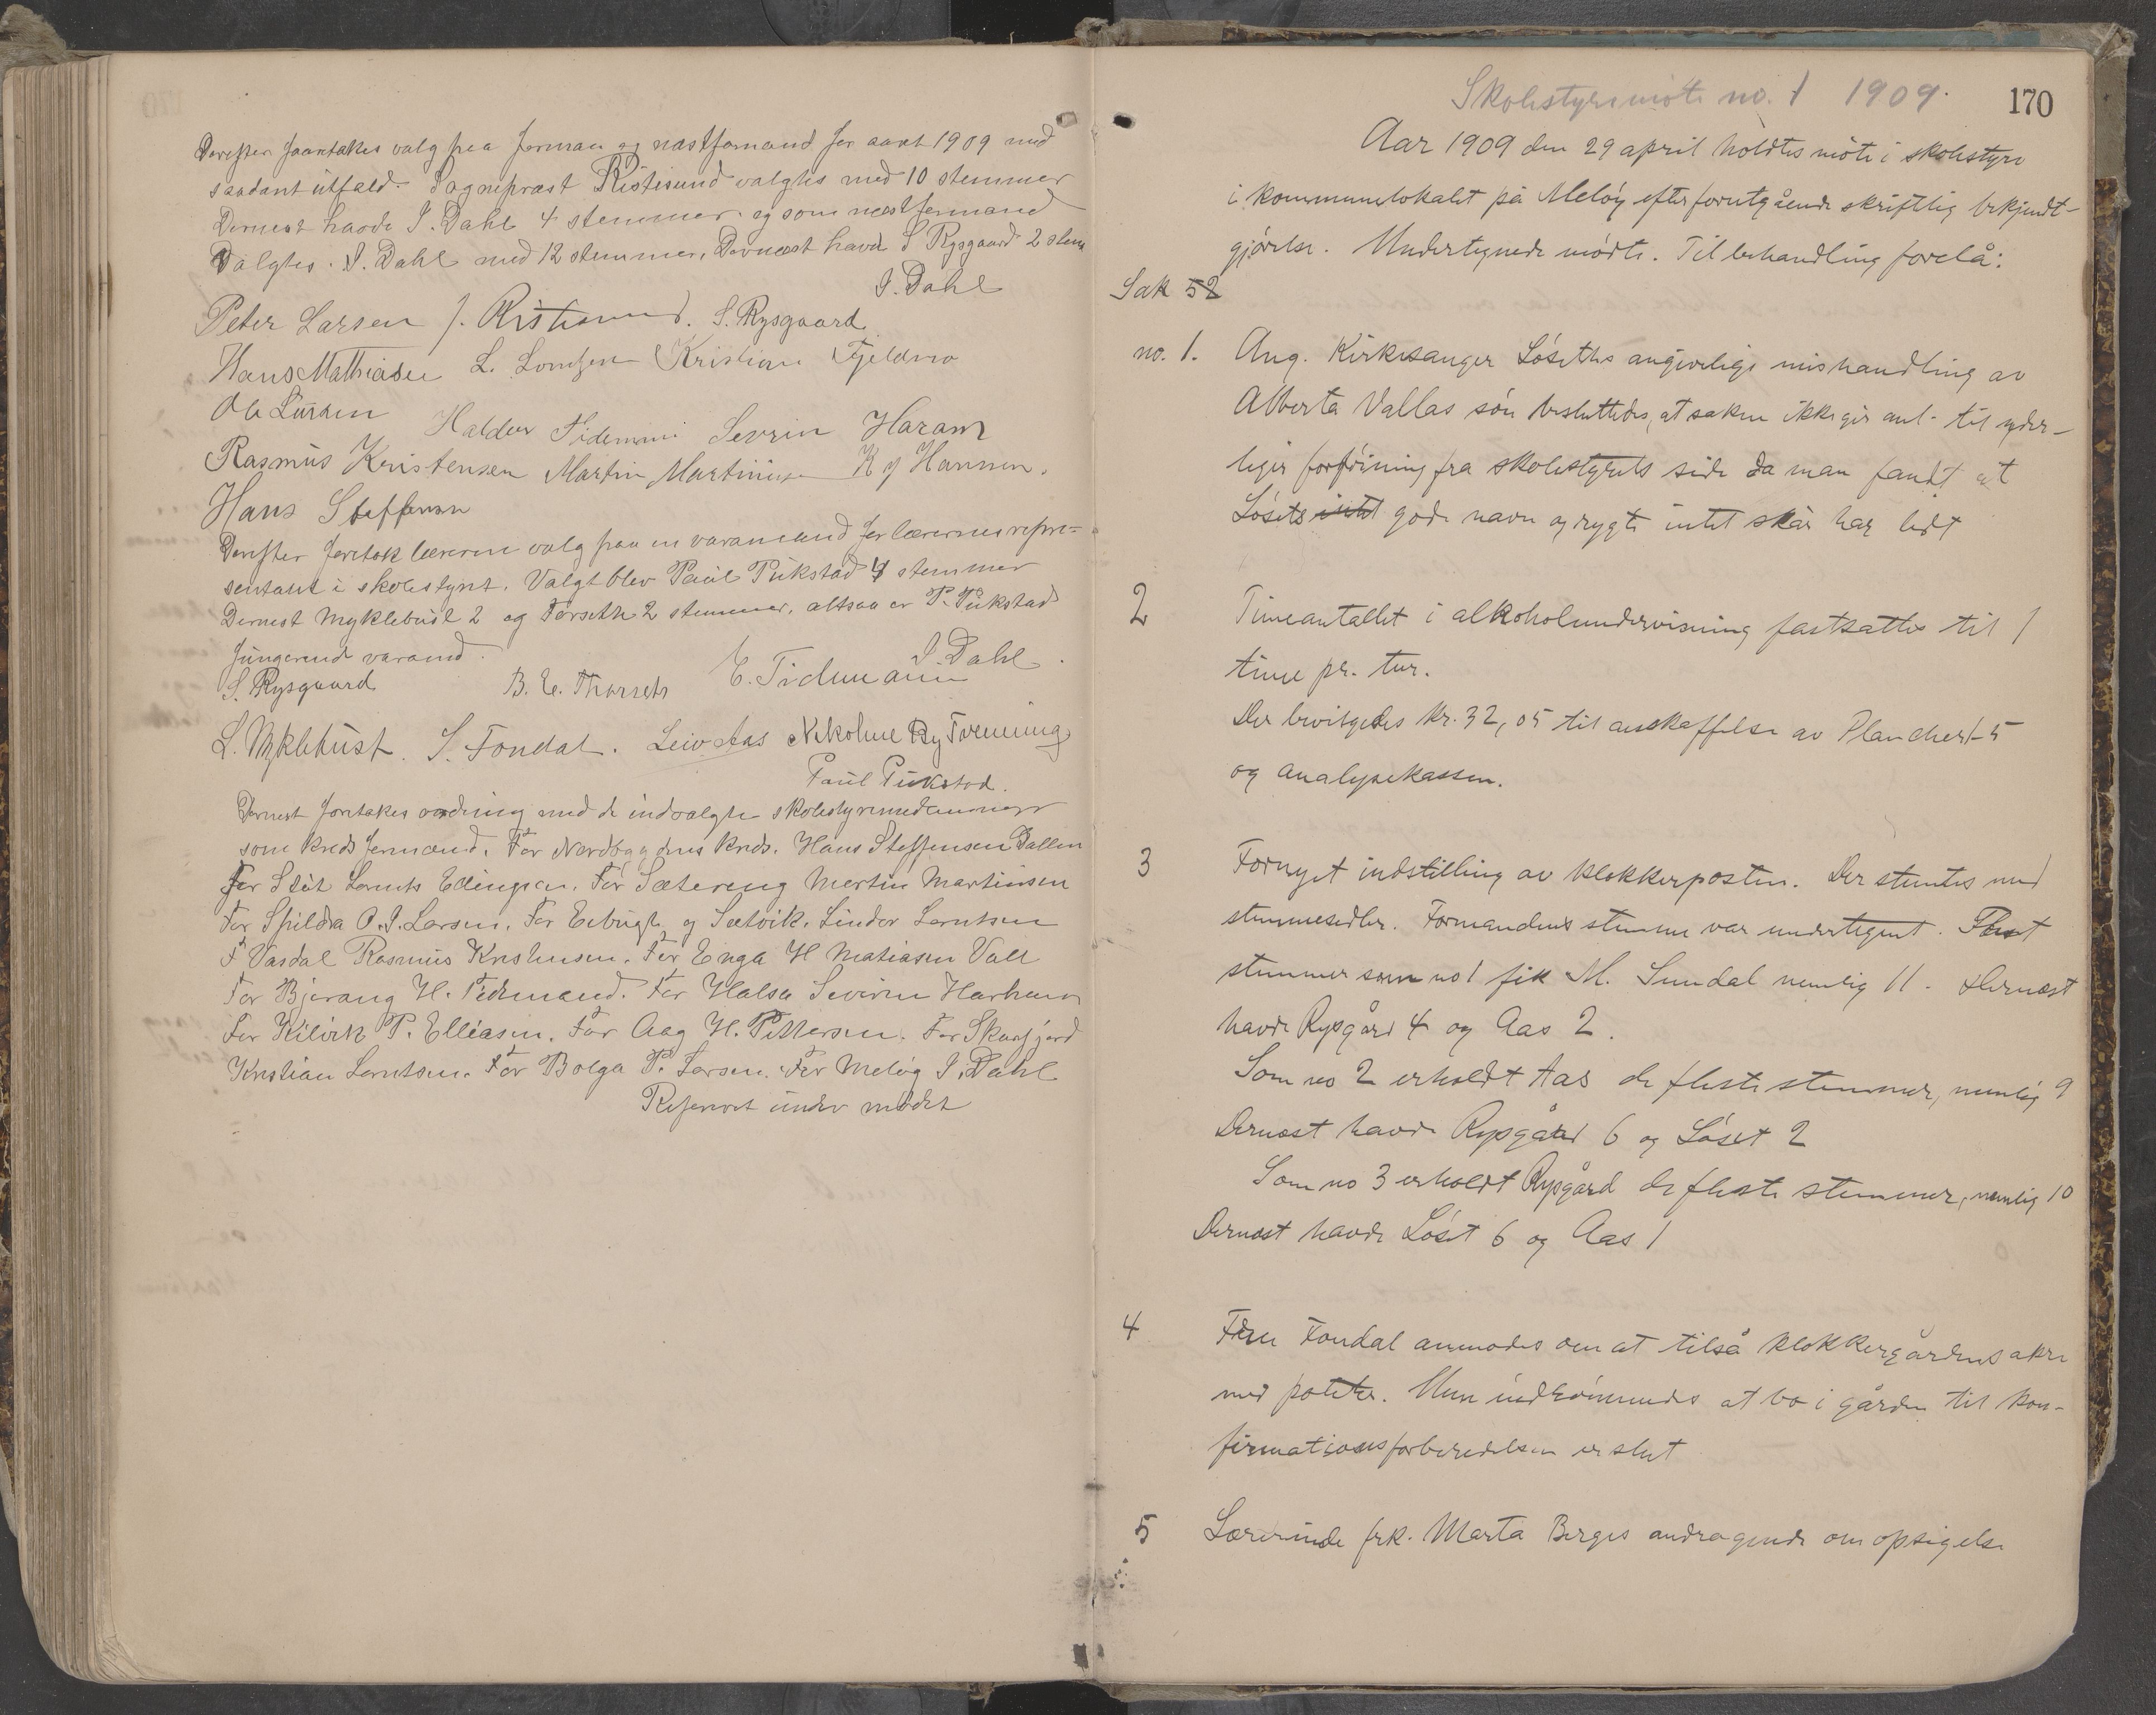 Derefter foretakes valg paa forman og næstformand for aaret 1909 med
saadant utfald. Sogneprest Ristesund valgtes med 10 stemmer
Dernest havde I. Dahl 4 stemmer. og som næstformand
Valgtes. I. Dahl med 12 stemmer, Dernæst havd S Rysgaard 2 stem
I. Dahl
Peter Larsen J. Ristesund. S. Rysgaard
Hans Mathiasen L. Lorntzen Kristian Fjeldmo
Ole Larsen
Haldor Tidemann Sevrin Haram
Rasmus Kristensen Martin Martinusen Hansen.
Hans Steffensen
Derefter foretok lærerne valg paa en varamand for lærernes repre=
sentant i skolestyret. Valgt blev Paul Pukstad 4 stemmer
Dernest Myklebust 2 og Torseth 2 stemmer, altsaa er P. Pukstad
fungerend varamd.
I. Dahl.
S. Rysgaard B. E. Thorseth E. Tidemann
L. Myklebust. S. Fondal. Leiv Aas Nikoline Ry Torening
Paul Pukstad.
Dernest foretakes ordning med de indvalgte skolestyremedlemmer
som kreds formænd. For Nordbygdens kreds. Hans Steffensen Dallen
For Støt Lornts Edingsen. For Sætereng Martin Martinsen
For Spildra O. I. Larsen. For Eebugt og Sætvik. Lindor Lorntsen
F Vasdal Rasmus Kristensen. For Enga H Matiasen Vall
For Bjerang H. Tidemand. For Halsa Sevrin Harham
For Kilvik P. Elliasen. For Aag H. Pettersen. For Skarsfjord
Kristian Lorntsen. For Bolga P. Larsen. For Meløy I. Dahl
Referert under mødet
Skolestyremöte no. 1 1909.
170
Aar 1909 den 29 april holdtes möte i skolestyre
i kommunelokalet på Melöy efter forutgående skriftlig bekjendt-
gjörelse. Undertegnede mödte. Til behandling forelå:
Sak 52
no. 1. Ang. Kirkesanger Lösetths angivelige mishandling av
Alberta Vallas sön besluttedes, at saken ikke gir anl. til yder-
ligere forföining fra skolestyrets side da man fandt at
Lösets intet gode navn og rygte intet skår har lidt
2 Timeantallet i alkoholundervisning fastsattes til 1
time pr. tur.
Der bevilgedes kr. 32,05 til anskaffelse av Plancher 1-5
og analysekassen.
3 Fornyet indstilling av klokkerposten. Der stemtes med
stemmesedler. Formandens stemme var undertegnet. Flest
stemmer som no 1 fik M. Sundal nemlig 11. Dernæst
havde Rysgård 4 og Aas 2.
Som no 2 erholdt Aas de fleste stemmer, nemlig 9
Dernæst havde Rysgård 6 og Löset 2
Som no 3 erholdt Rysgård de fleste stemmer, nemlig 10
Dernæst havde Löset 6 og Aas 1
4 Fru Fondal anmodes om at tilså klokkergårdens akre
med poteter. Hun indrömmedes at bo i gården til kon-
firmationsforberedelsen er slut
5 Lærerinde frk. Marta Berges andragende om opsigelse